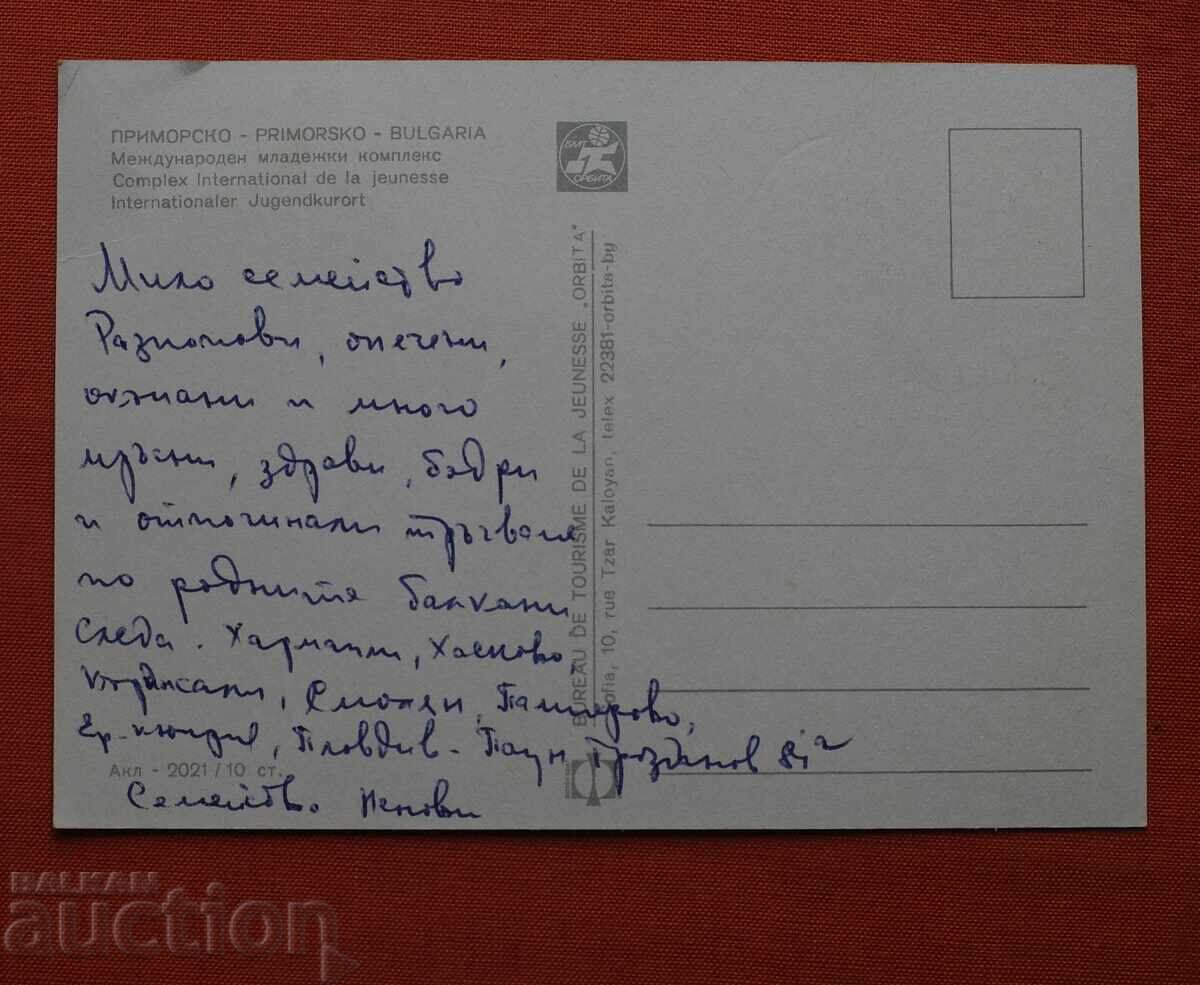 ПРИМОРСКО - PRIMORSKO - BULGARIA
Международен младежки комплекс
Complex International de la jeunesse
Internationaler Jugendkurort
БМТ
ОРБИТА
Мило семейство
Разпопови, опечени,
окъпани и много
мръсни, здрави, бодри
и отпочинали тръгваме
по родните балкани
следа. Харманли, Хасково,
Кърджали, Смолян, Пампорово,
Ер-кюприя, Пловдив - Паун Грозданов
Семейство Ненови
BUREAU DE TOURISME DE LA JEUNESSE „ORBITA"
Sofia, 10, rue Tzar Kaloyan, telex 22381-orbita-by
Акл - 2021/10 ст.
BALKAN
auction